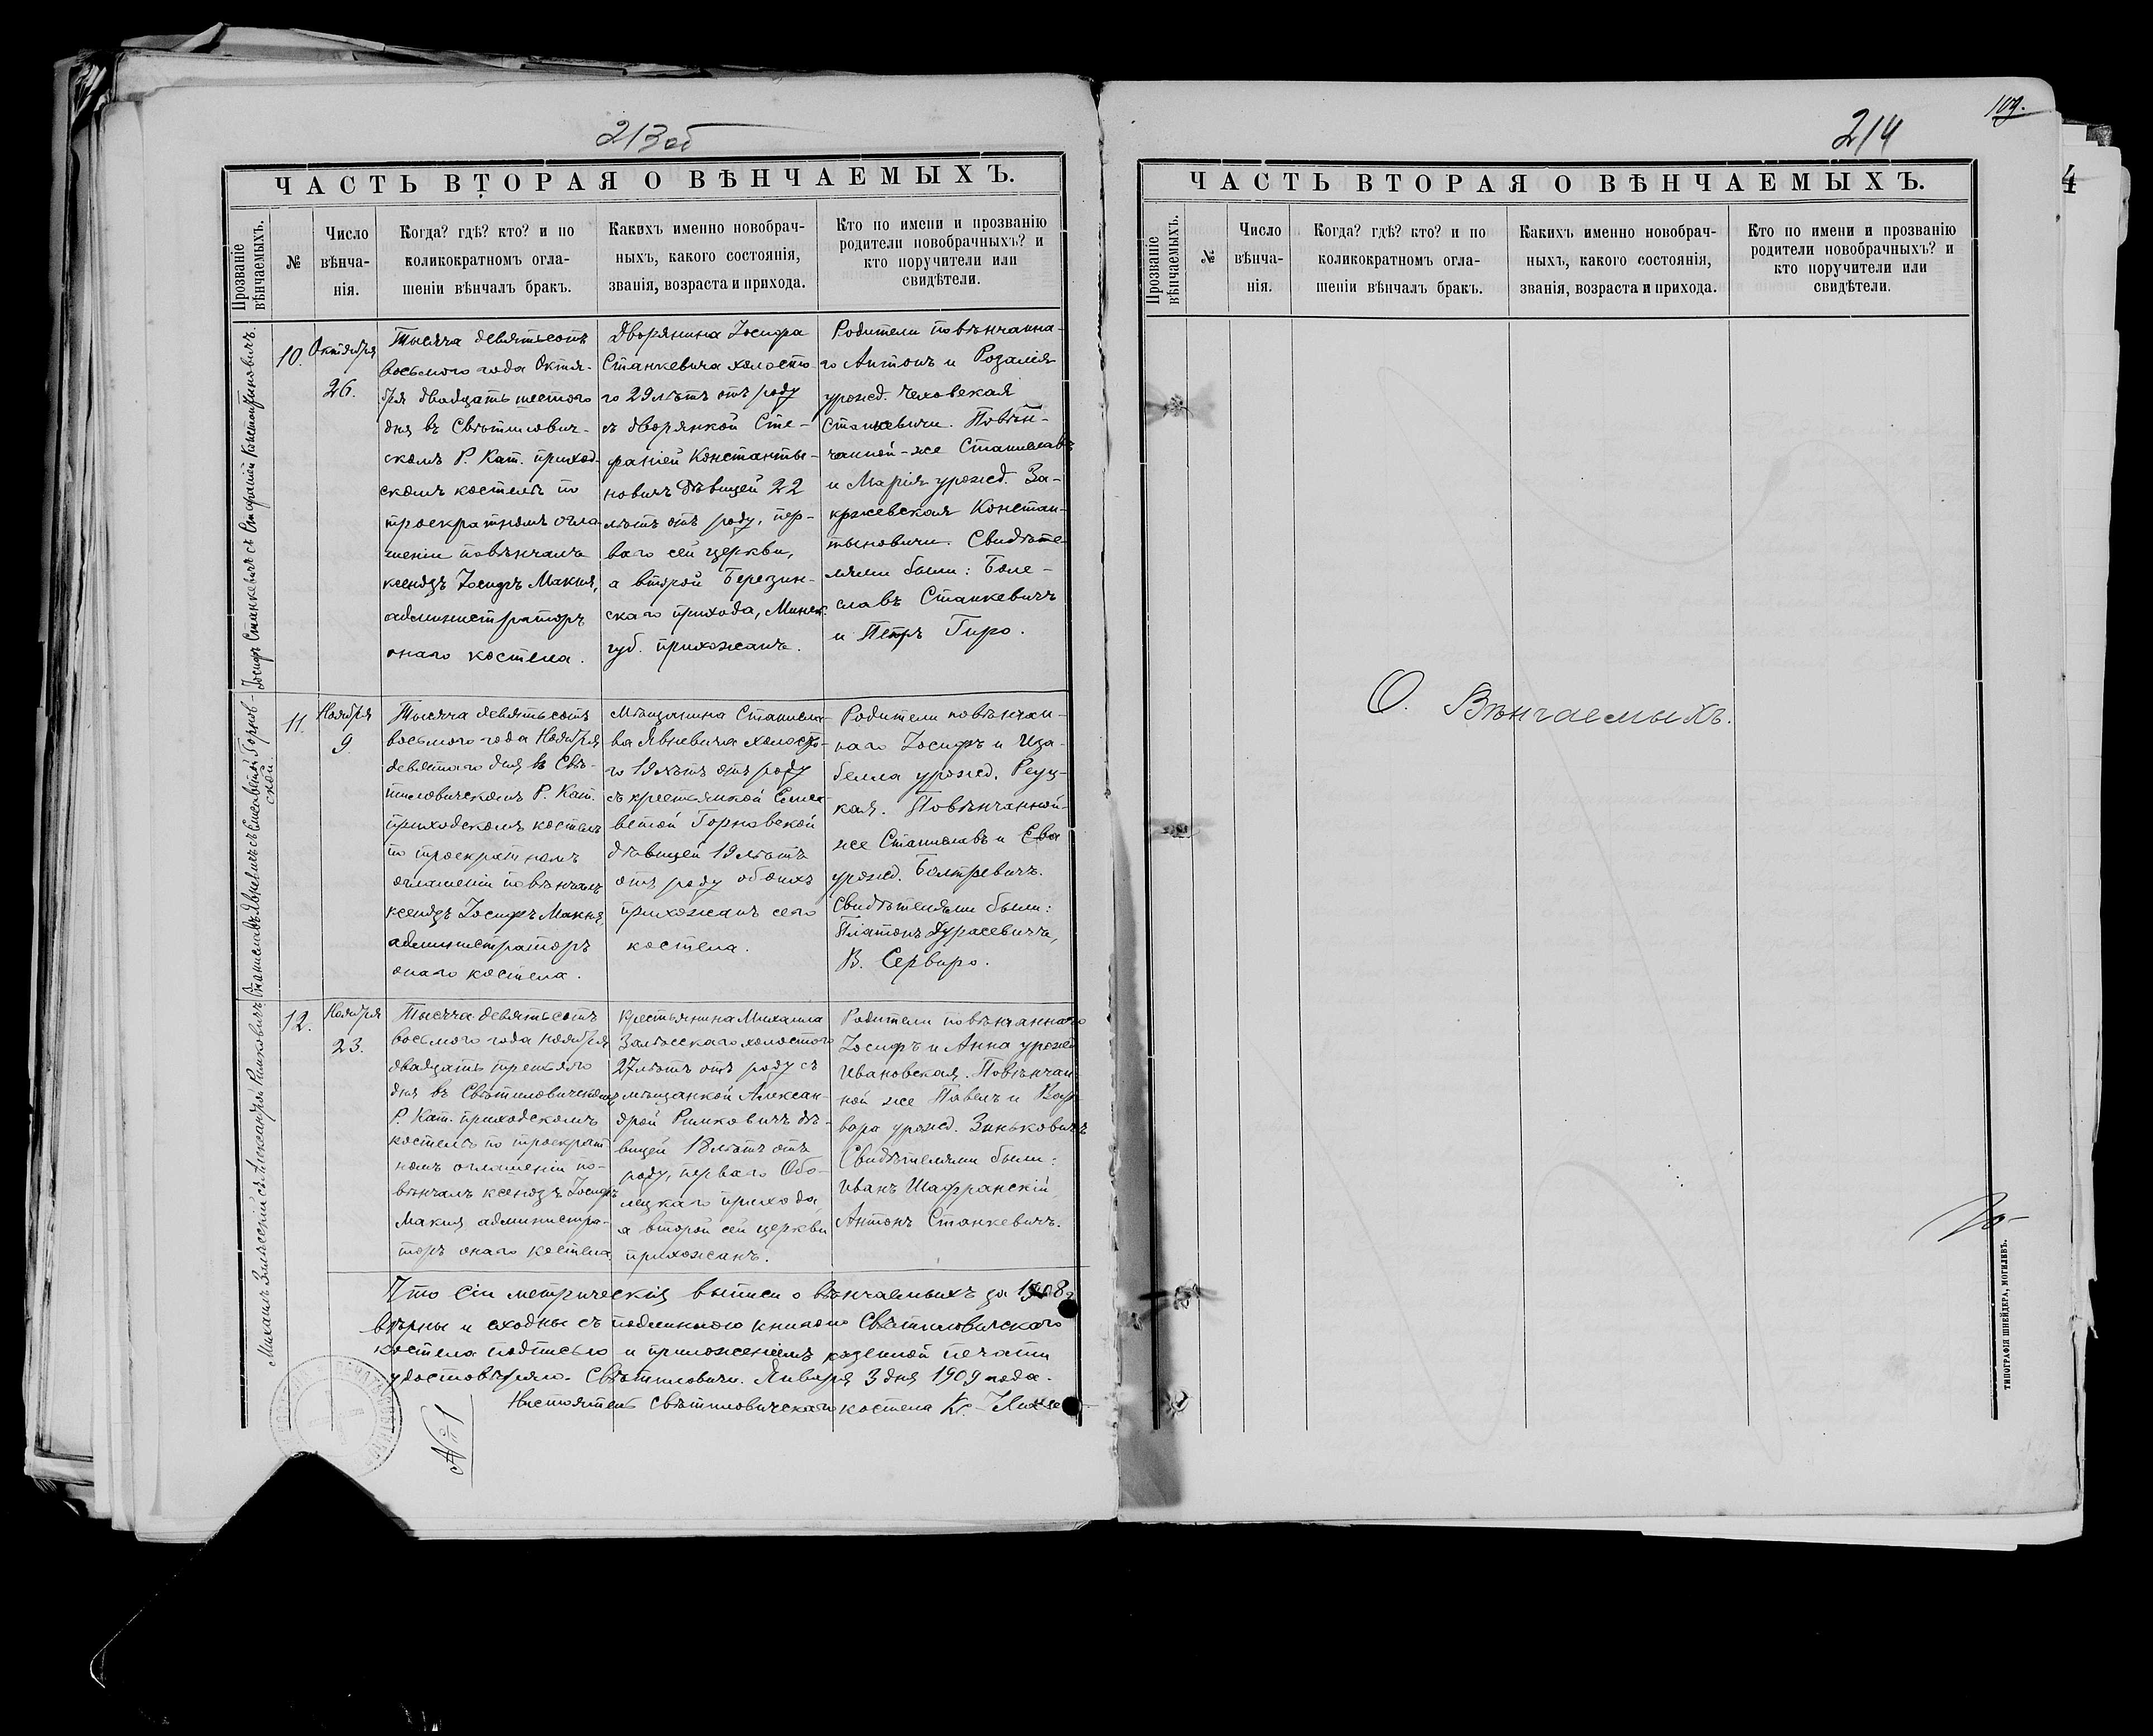 213об
ЧАСТЬ ВТОРАЯ О ВѢНЧАЕМЫХЪ.
Прозваніе
вѣнчаемыхъ.
№
Число
вѣнча-
нія.
Когда? гдѣ? кто? и по
коликократномъ огла-
шеніи вѣнчалъ бракъ.
Какихъ именно новобрач-
ныхъ, какого состоянія,
званія, возраста и прихода.
Кто по имени и прозванію
родители новобрачныхъ? и
кто поручители или
свидѣтели.
Іосифъ Станкевичъ съ Стефаніей Константиновичъ.
10.
Октября
26.
Тысяча девятьсотъ
восьмого года Октя-
бря двадцать шестого
дня въ Свѣтилович-
скомъ Р. Кат. приход-
скомъ костелѣ по
троекратномъ огла-
шеніи повѣнчалъ
ксендзъ Іосифъ Макня,
администраторъ
онаго костела.
Дворянина Іосифа
Станкевича холосто-
го 29 лѣтъ отъ роду
съ дворянкой Сте-
фаніей Константы-
новичъ дѣвицей 22
лѣтъ отъ роду, пер-
ваго сей церкви,
а второй Березин-
скаго прихода, Минск.
губ. прихожанъ.
Родители повѣнчанна-
го Антонъ и Розалія
урожд. Чеховская
Станкевичи. Повѣн-
чанной-же Станиславъ
и Марія урожд. За-
кржевская Констан-
тыновичи. Свидѣте-
лями были: Боле-
славъ Станкевичъ
и Петръ Гиро.
Станиславъ съ Елисаветой Горнов-
ской.
11.
Ноября
9.
Тысяча девятьсотъ
восьмого года Ноября
девятаго дня въ Свѣ-
тиловичскомъ Р. Кат.
приходскомъ костелѣ
по троекратномъ
оглашеніи повѣнчалъ
ксендзъ Іосифъ Макня,
администраторъ
онаго костела.
Мѣщанина Станисла-
ва холосто-
го 19 лѣтъ отъ роду
съ крестьянкой Елиса-
ветой Горновской
дѣвицей 19 лѣтъ
отъ роду обоихъ
прихожанъ сего
костела.
Родители повѣнчан-
наго Іосифъ и Иза-
белла урожд. Реуц-
кая. Повѣнчанной-
же Станиславъ и Ева
урожд. Болтревичъ.
Свидѣтелями были:
Платонъ Дурасевичъ,
В. Сервиро.
Михаилъ Залѣсскій съ Александрой Римковичъ
12.
Ноября
23.
Тысяча девятьсотъ
восьмого года Ноября
двадцать третьяго
дня въ Свѣтиловичскомъ
Р. Кат. приходскомъ
костелѣ по троекрат
номъ оглашеніи по-
вѣнчалъ ксендзъ Іосифъ
Макня администра-
торъ онаго костела.
Крестьянина Михаила
Залѣсскаго холостого
27 лѣтъ отъ роду съ
мѣщанкой Алексан-
дрой Римковичъ дѣ-
вицей 18 лѣтъ отъ
роду, перваго Обо-
лецкаго прихода,
а второй сей церкви
прихожанъ.
Родители повѣнчаннаго
Іосифъ и Анна урожд.
Ивановская. Повѣнчан-
ной же Павелъ и Вар
вара урожд. Зиньковичъ
Свидѣтелями были:
Иванъ Шафранскій,
Антонъ Станкевичъ.
Что сіи метрическія выписи о вѣнчаемыхъ за 1908 г
вѣрны и сходны съ подлинною книгою Свѣтиловичскаго
костела подписью и приложеніемъ казенной печати
удостовѣряю. Свѣтиловичи. Января 3 дня 1909 года.
Настоятель Свѣтиловичскаго костела Кс.
№ 1
109.
214
ЧАСТЬ ВТОРАЯ О ВѢНЧАЕМЫХЪ.
Прозваніе
вѣнчаемыхъ.
№
Число
вѣнча-
нія.
Когда? гдѣ? кто? и по
коликократномъ огла-
шеніи вѣнчалъ бракъ.
Какихъ именно новобрач-
ныхъ, какого состоянія,
званія, возраста и прихода.
Кто по имени и прозванію
родители новобрачныхъ? и
кто поручители или
свидѣтели.
О. Вѣнчаемыхъ.
ТИПОГРАФІЯ ШНЕЙДЕРА, МОГИЛЕВЪ.
4